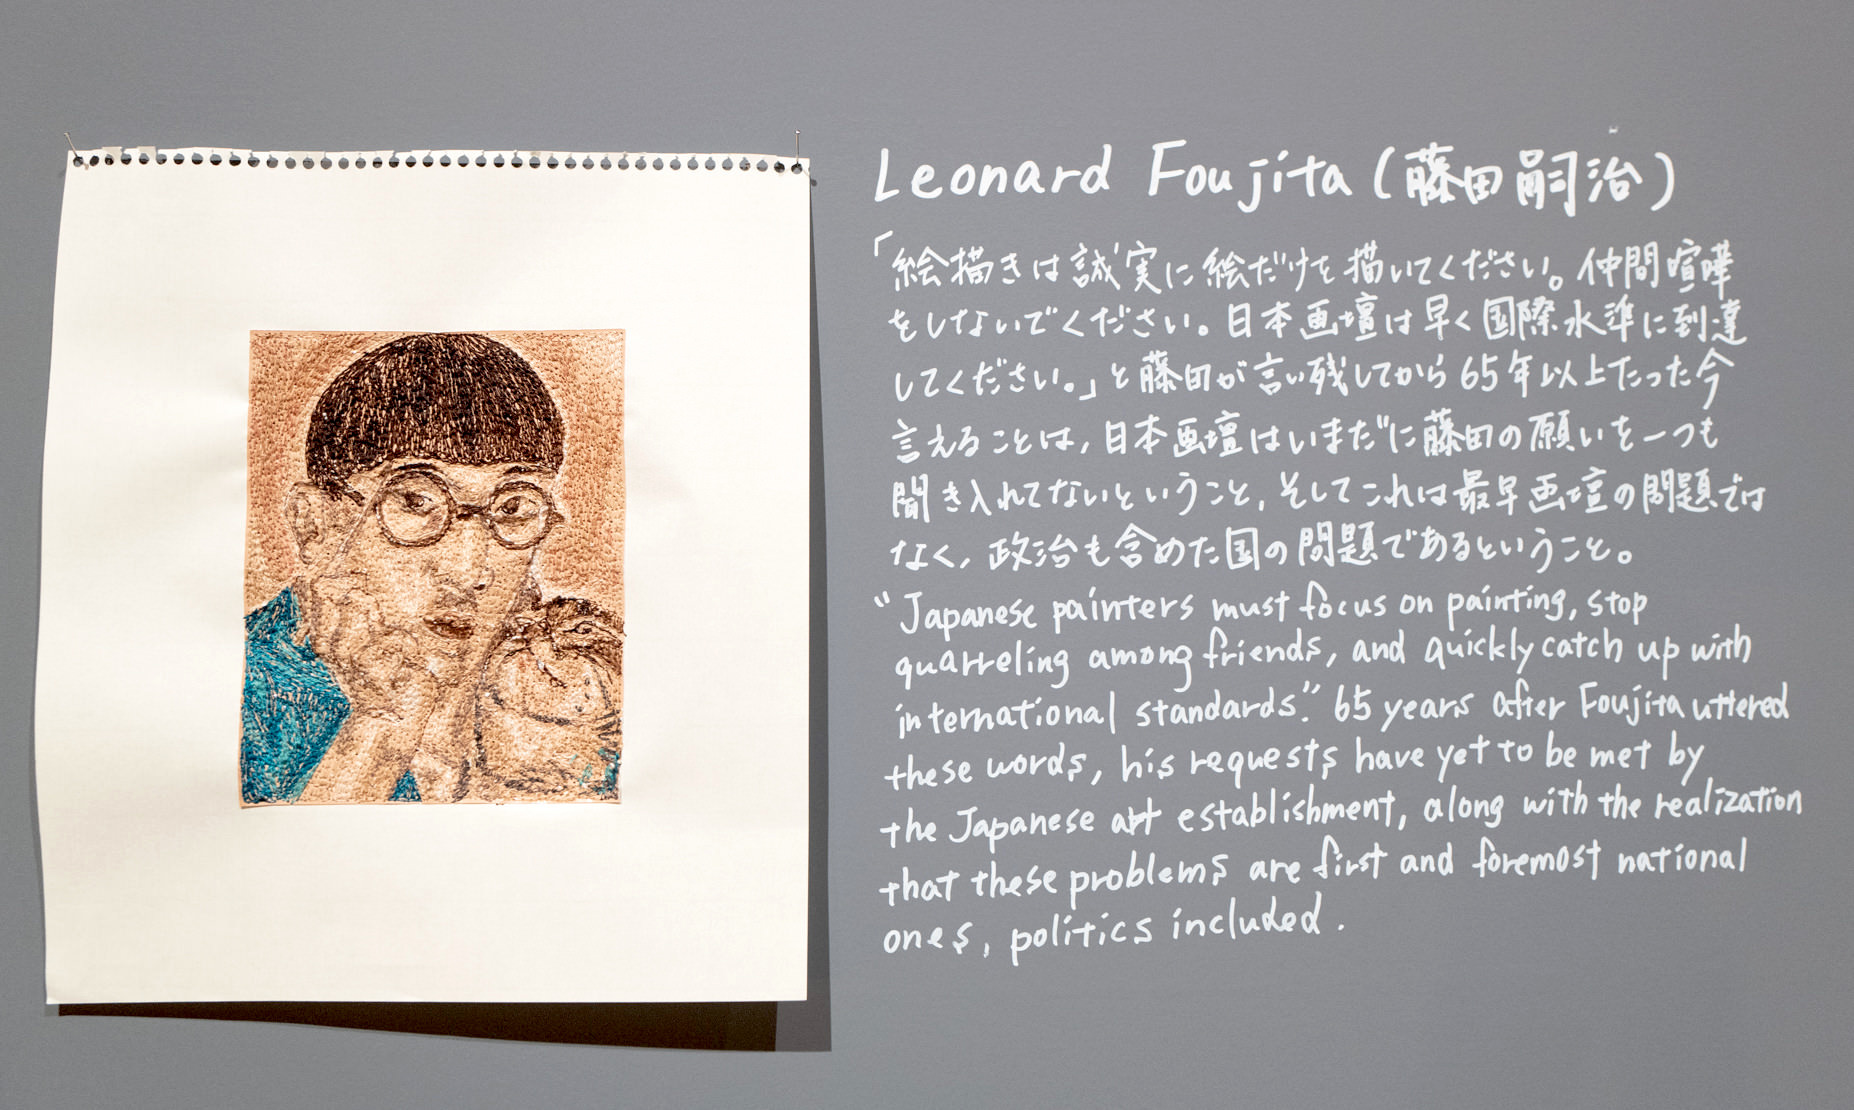 Leonard Foujita (藤田嗣治)
「絵描きは誠実に絵だけを描いてください。仲間喧嘩
をしないでください。日本画壇は早く国際水準に到達
してください。」と藤田が言い残してから65年以上たった今
言えることは,日本画壇はいまだに藤田の願いを一つも
聞き入れてないということ,そしてこれは最早画壇の問題では
なく,政治も含めた国の問題であるということ。
"Japanese painters must focus on painting, stop
quarreling among friends, and quickly catch up with
international standards." 65 years after Foujita uttered
these words, his requests have yet to be met by
the Japanese art establishment, along with the realization
that these problems are first and foremost national
ones, politics included.